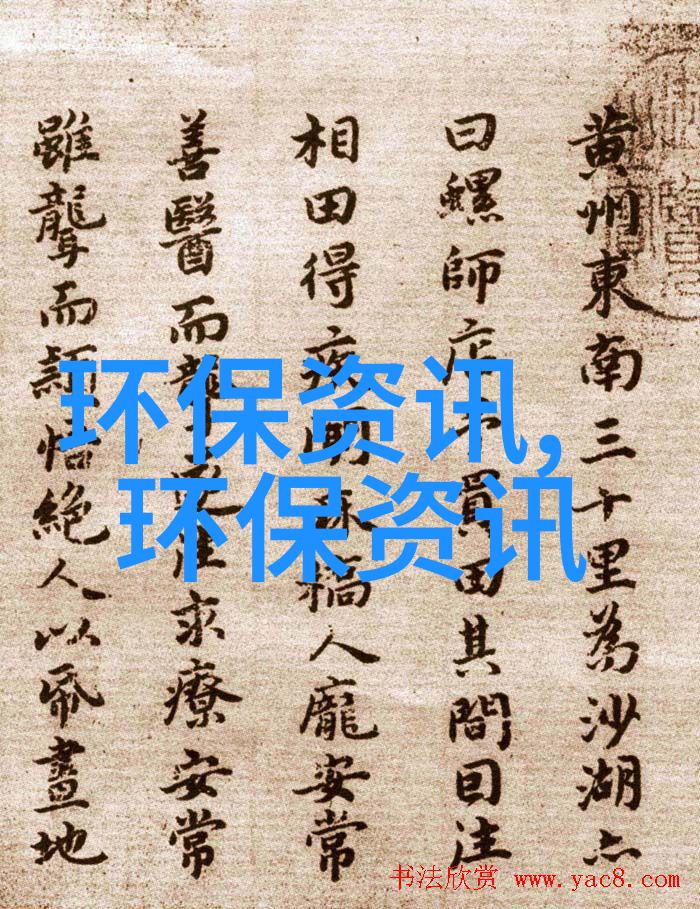 黄州東南三十里為沙湖亦
曰螺師店予買田其間囙往
相田得疾聞橋人龐安常
善醫而聾往求療安常
雖聾而穎悟絕人以紙畫地
环保资讯,
环保资讯
书法欣赏 www.yac8.com